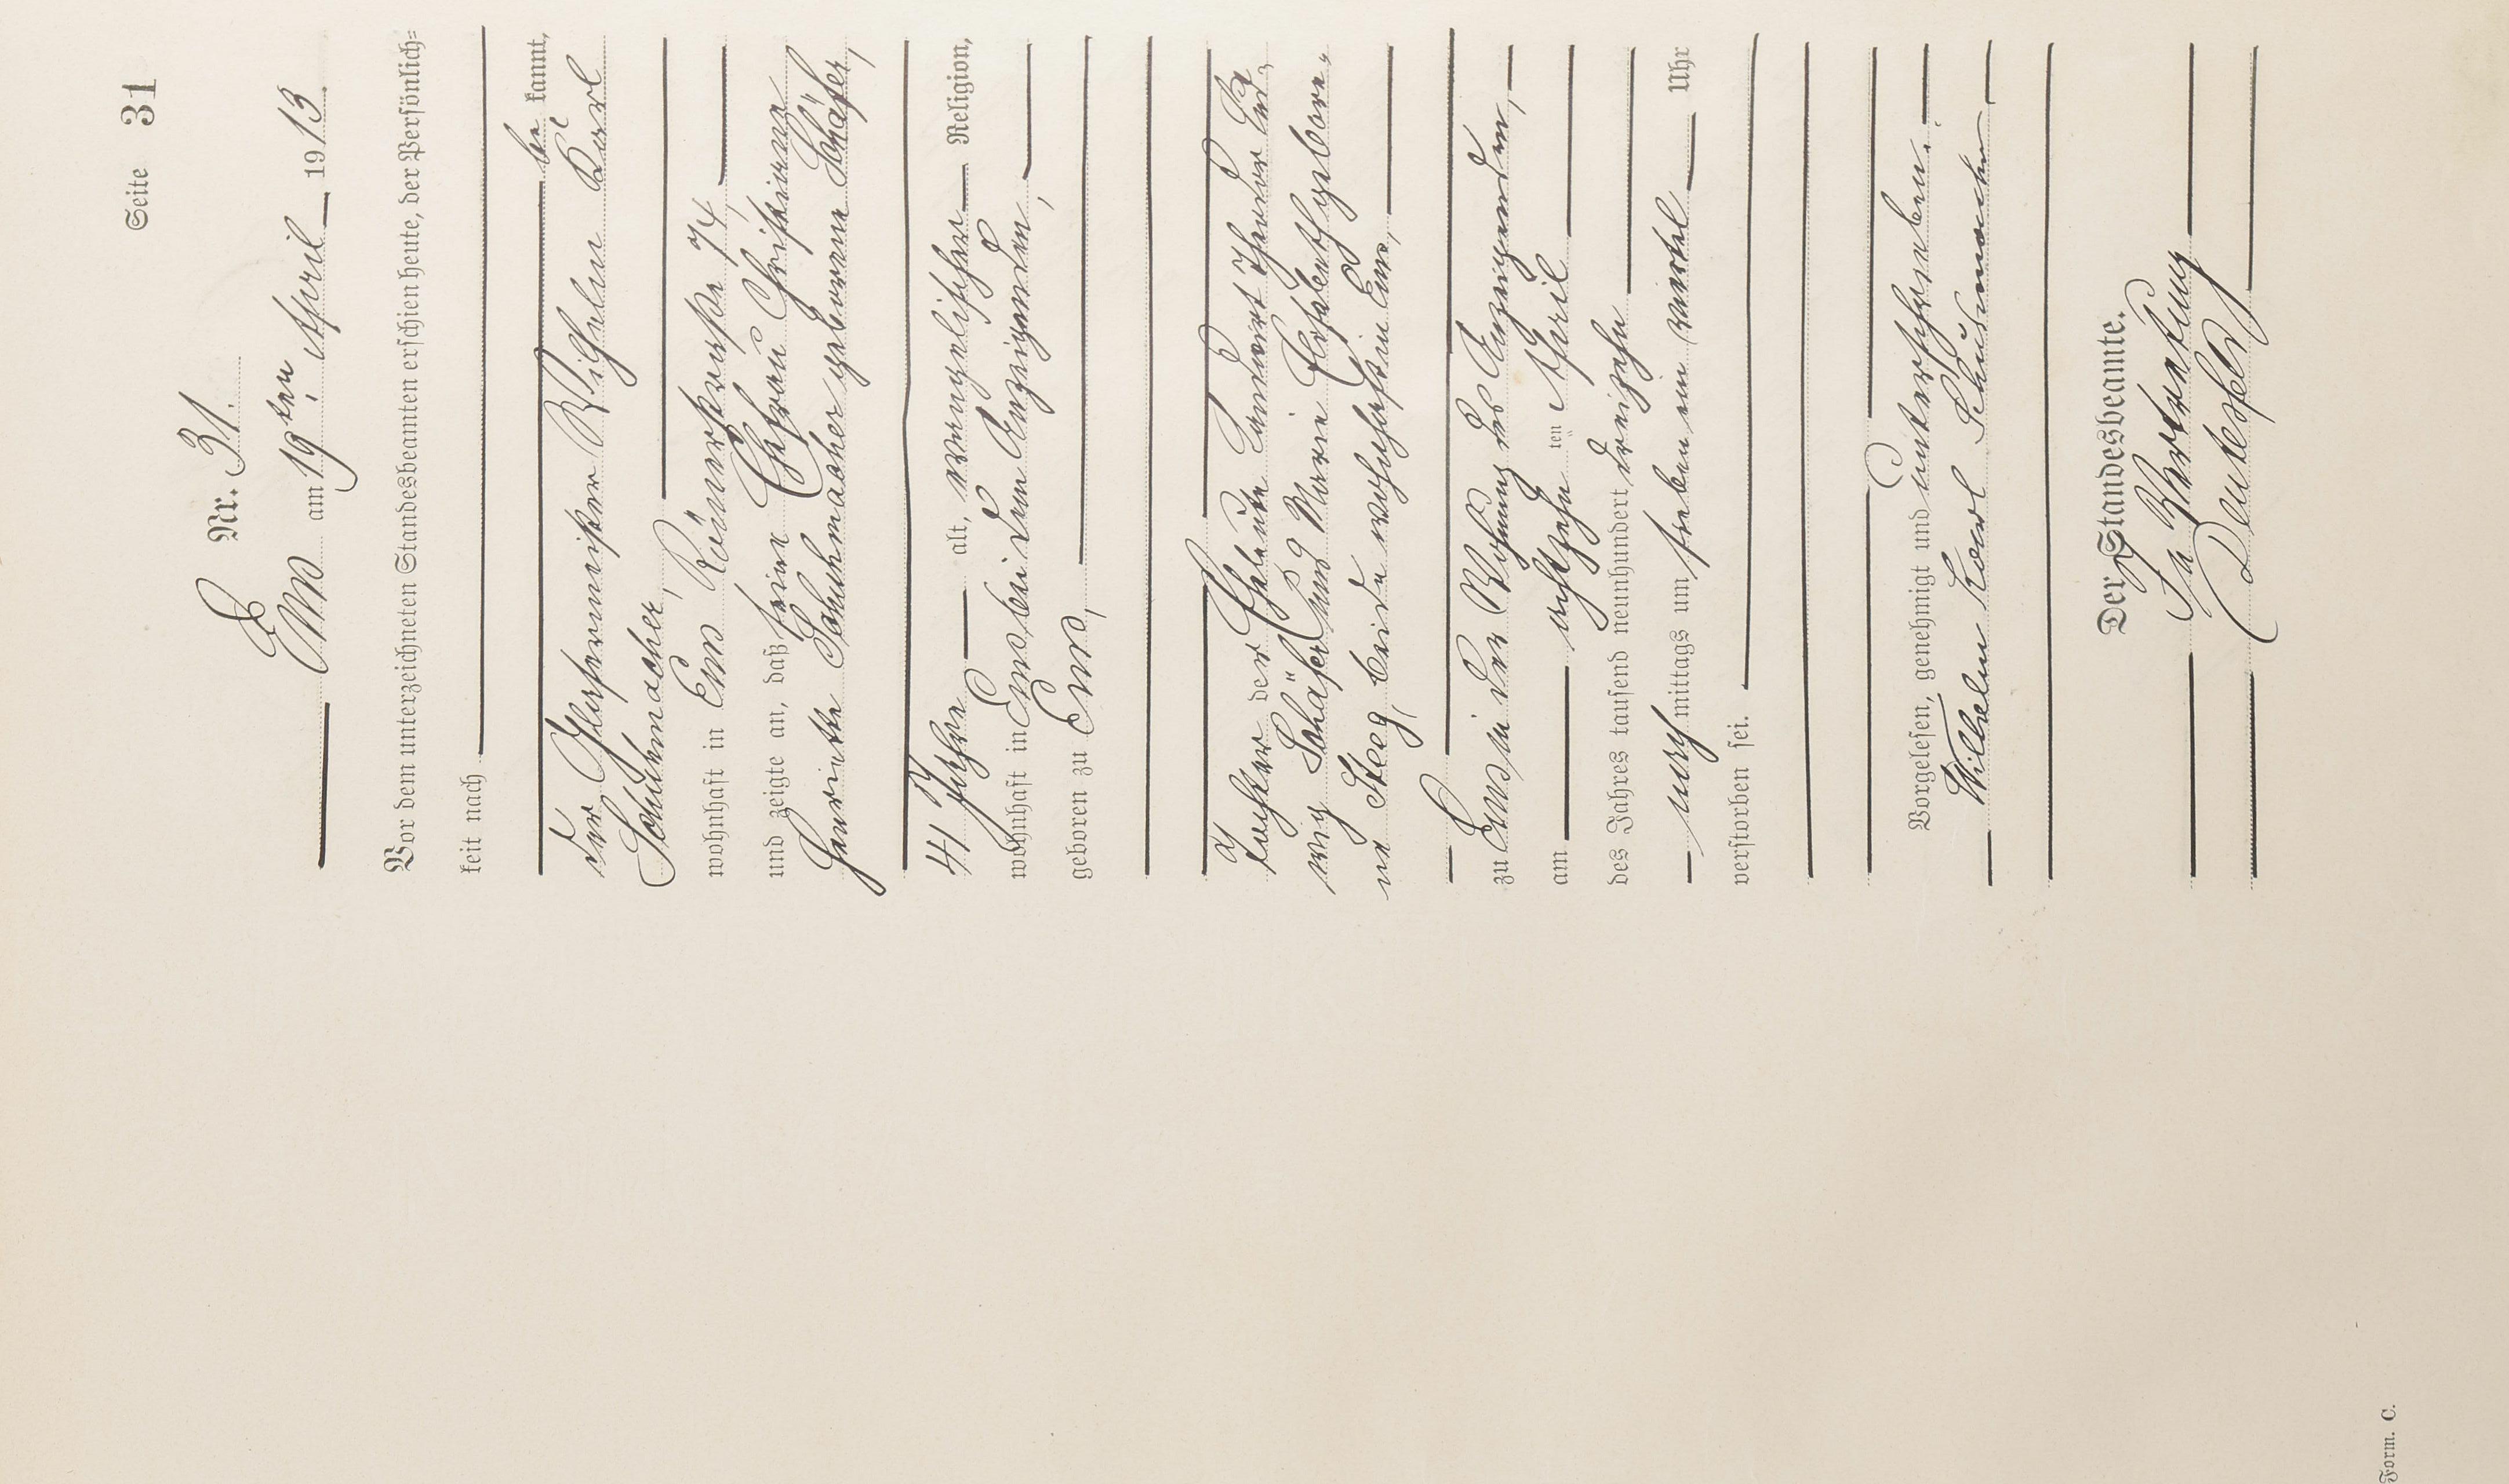 Seite 31
Nr. 31.
Ems am 19ten April 1913
Vor dem unterzeichneten Standesbeamten erschien heute, der Persönlich=
keit nach
be kannt,
der Glasermeister Wilhelm Karl
Schuhmacher,
wohnhaft in Ems Römerstraße 74,
und zeigte an, daß seine Ehefrau Christiane
Henriette Schuhmacher geborene Schäfer,
41 Jahre alt, evangelischer Religion,
wohnhaft in Ems bei dem Anzeigenden,
geboren zu Ems,
Tochter der Eheleute Landwirt Theodor Lud,
wig Schäfer und Marie Elisabeth gebore,
ne Steeg, beide wohnhaft in Ems,
zu Ems in der Wohnung des Anzeigenden,
am achtzehn ten April
des Jahres tausend neunhundert dreizehn
nach mittags um sieben ein viertel Uhr
verstorben sei.
Vorgelesen, genehmigt und unterschrieben.
Wilhelm Karl Schuhmacher
Der Standesbeamte.
In Vertretung